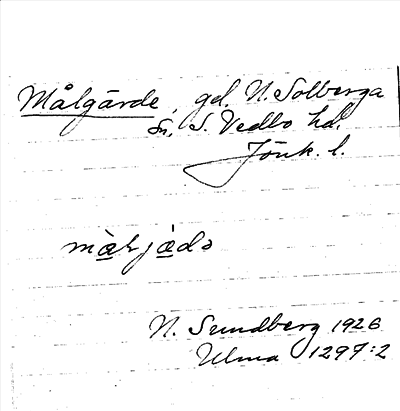 Målgärde, gd. N. Solberga
sn. S. Vedbo hd.
Jönk. l.
N. Sundberg 1926
Ulma 1297:2